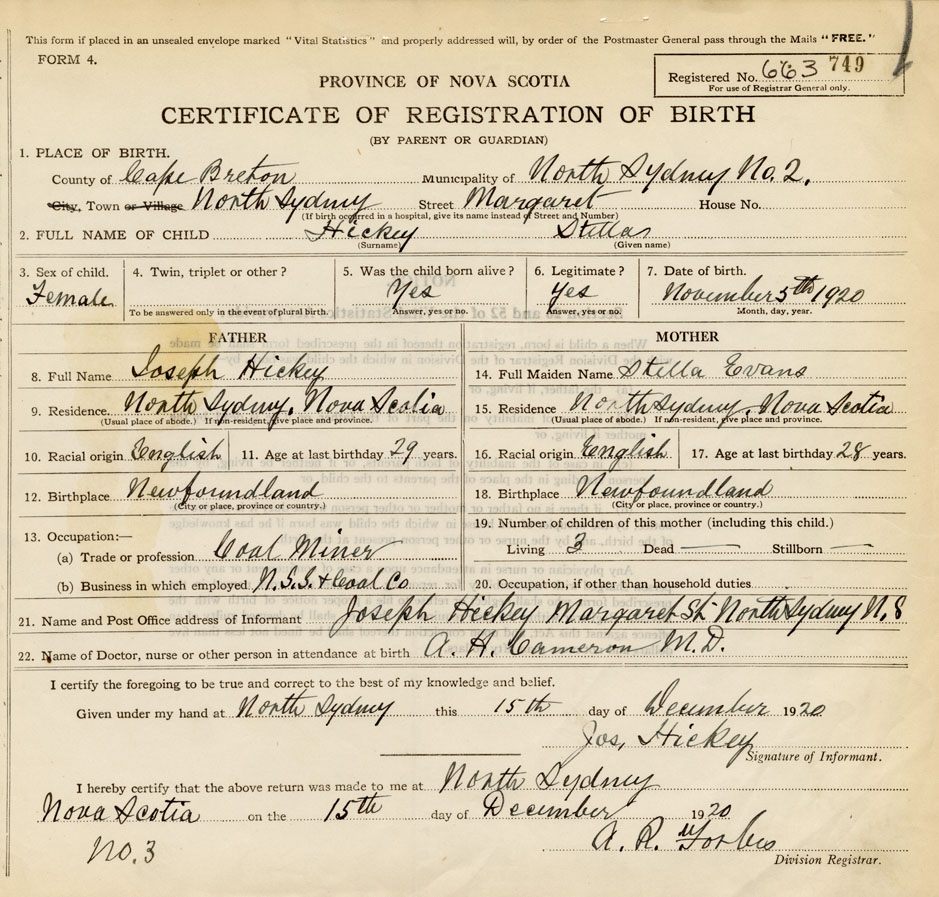 This form if placed in an unsealed envelope marked "Vital Statistics" and properly addressed will, by order of the Postmaster General pass through the Mails "FREE."
FORM 4.
Registered No. 663 749
For use of Registrar General only.
PROVINCE OF NOVA SCOTIA
CERTIFICATE OF REGISTRATION OF BIRTH
(BY PARENT OR GUARDIAN)
1. PLACE OF BIRTH.
County of Cape Breton Municipality of North Sydney No. 2,
City, Town or Village North Sydney Street Margaret House No.
(If birth occurred in a hospital, give its name instead of Street and Number)
2. FULL NAME OF CHILD Hickey Stella
(Surname) (Given name)
3. Sex of child. 4. Twin, triplet or other? 5. Was the child born alive? 6. Legitimate? 7. Date of birth.
Female Yes Yes November 5th 1920
To be answered only in the event of plural birth. Answer, yes or no. Answer, yes or no. Month, day, year.
FATHER MOTHER
8. Full Name Joseph Hickey 14. Full Maiden Name Stella Evans
9. Residence. North Sydney, Nova Scotia 15. Residence North Sydney, Nova Scotia
(Usual place of abode.) If non-resident, give place and province. (Usual place of abode.) If non-resident, give place and province.
10. Racial origin English 11. Age at last birthday 29 years. 16. Racial origin English 17. Age at last birthday 28 years.
12. Birthplace Newfoundland 18. Birthplace Newfoundland
(City or place, province or country.) (City or place, province or country.)
13. Occupation:— 19. Number of children of this mother (including this child.)
(a) Trade or profession Coal Miner Living 3 Dead — Stillborn —
(b) Business in which employed N.S.S. & Coal Co 20. Occupation, if other than household duties
21. Name and Post Office address of Informant Joseph Hickey Margaret St. North Sydney N.S
22. Name of Doctor, nurse or other person in attendance at birth A. H. Cameron M.D.
I certify the foregoing to be true and correct to the best of my knowledge and belief.
Given under my hand at North Sydney this 15th day of December 1920
Jos, Hickey
Signature of Informant.
I hereby certify that the above return was made to me at North Sydney
Nova Scotia on the 15th day of December 1920
No. 3 A. R. Forbes
Division Registrar.